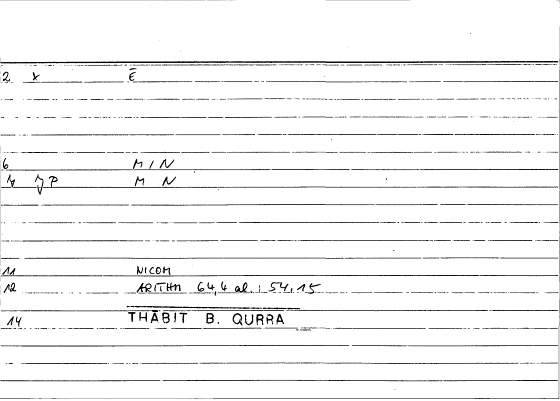 2 x Ē
6 MIN
7 JP M N
11 NICOM
12 ARITHM 64,4 al.: 54,15
14 THĀBIT B. QURRA